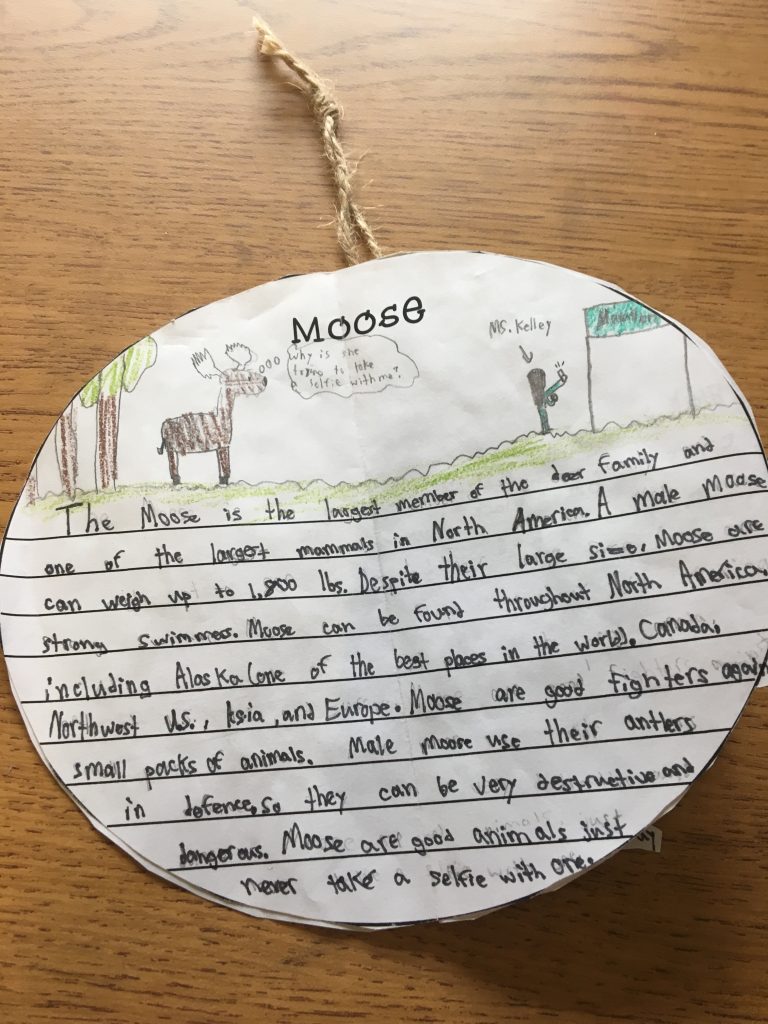 Moose
MS. Kelley
Why is she
trying to take
a selfie with me?
The Moose is the largest member of the deer family and
one of the largest mammals in North America. A male moose
can weigh up to 1,800 lbs. Despite their large size, Moose are
strong swimmers. Moose can be found throughout North America,
including Alaska (one of the best places in the world), Canada,
Northwest U.S., Asia, and Europe. Moose are good fighters again
small packs of animals. Male moose use their antlers
in defence, so they can be very destructive and
dangerous. Moose are good animals just
never take a selfie with one.